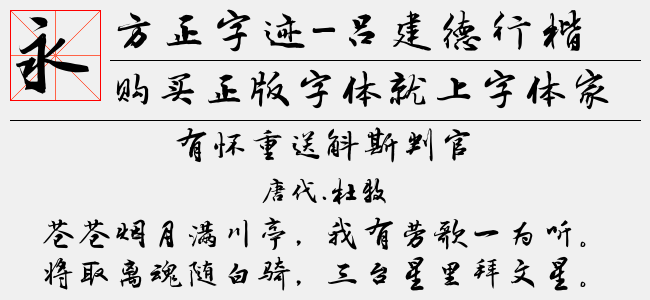 永
方正字迹-吕建德行楷
购买正版字体就上字体家
有怀重送斛斯判官
唐代.杜牧
苍苍烟月满川亭，我有劳歌一为听。
将取离魂随白骑，三台星里拜文星。